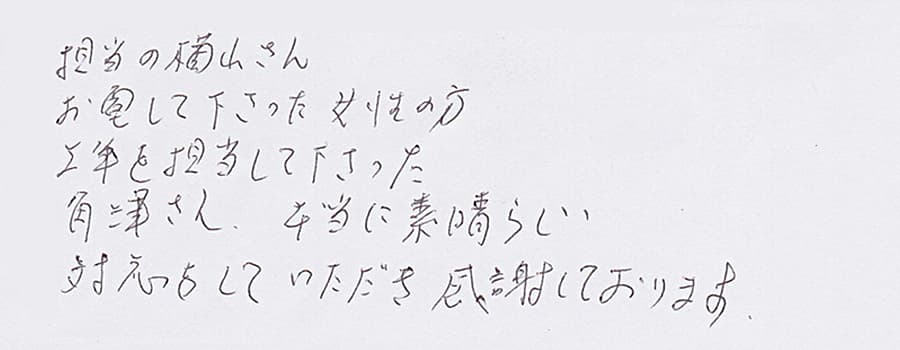 担当の横山さん
お電して下さった女性の方
工事を担当して下さった
角津さん、本当に素晴らしい
対応をしていただき感謝しております.